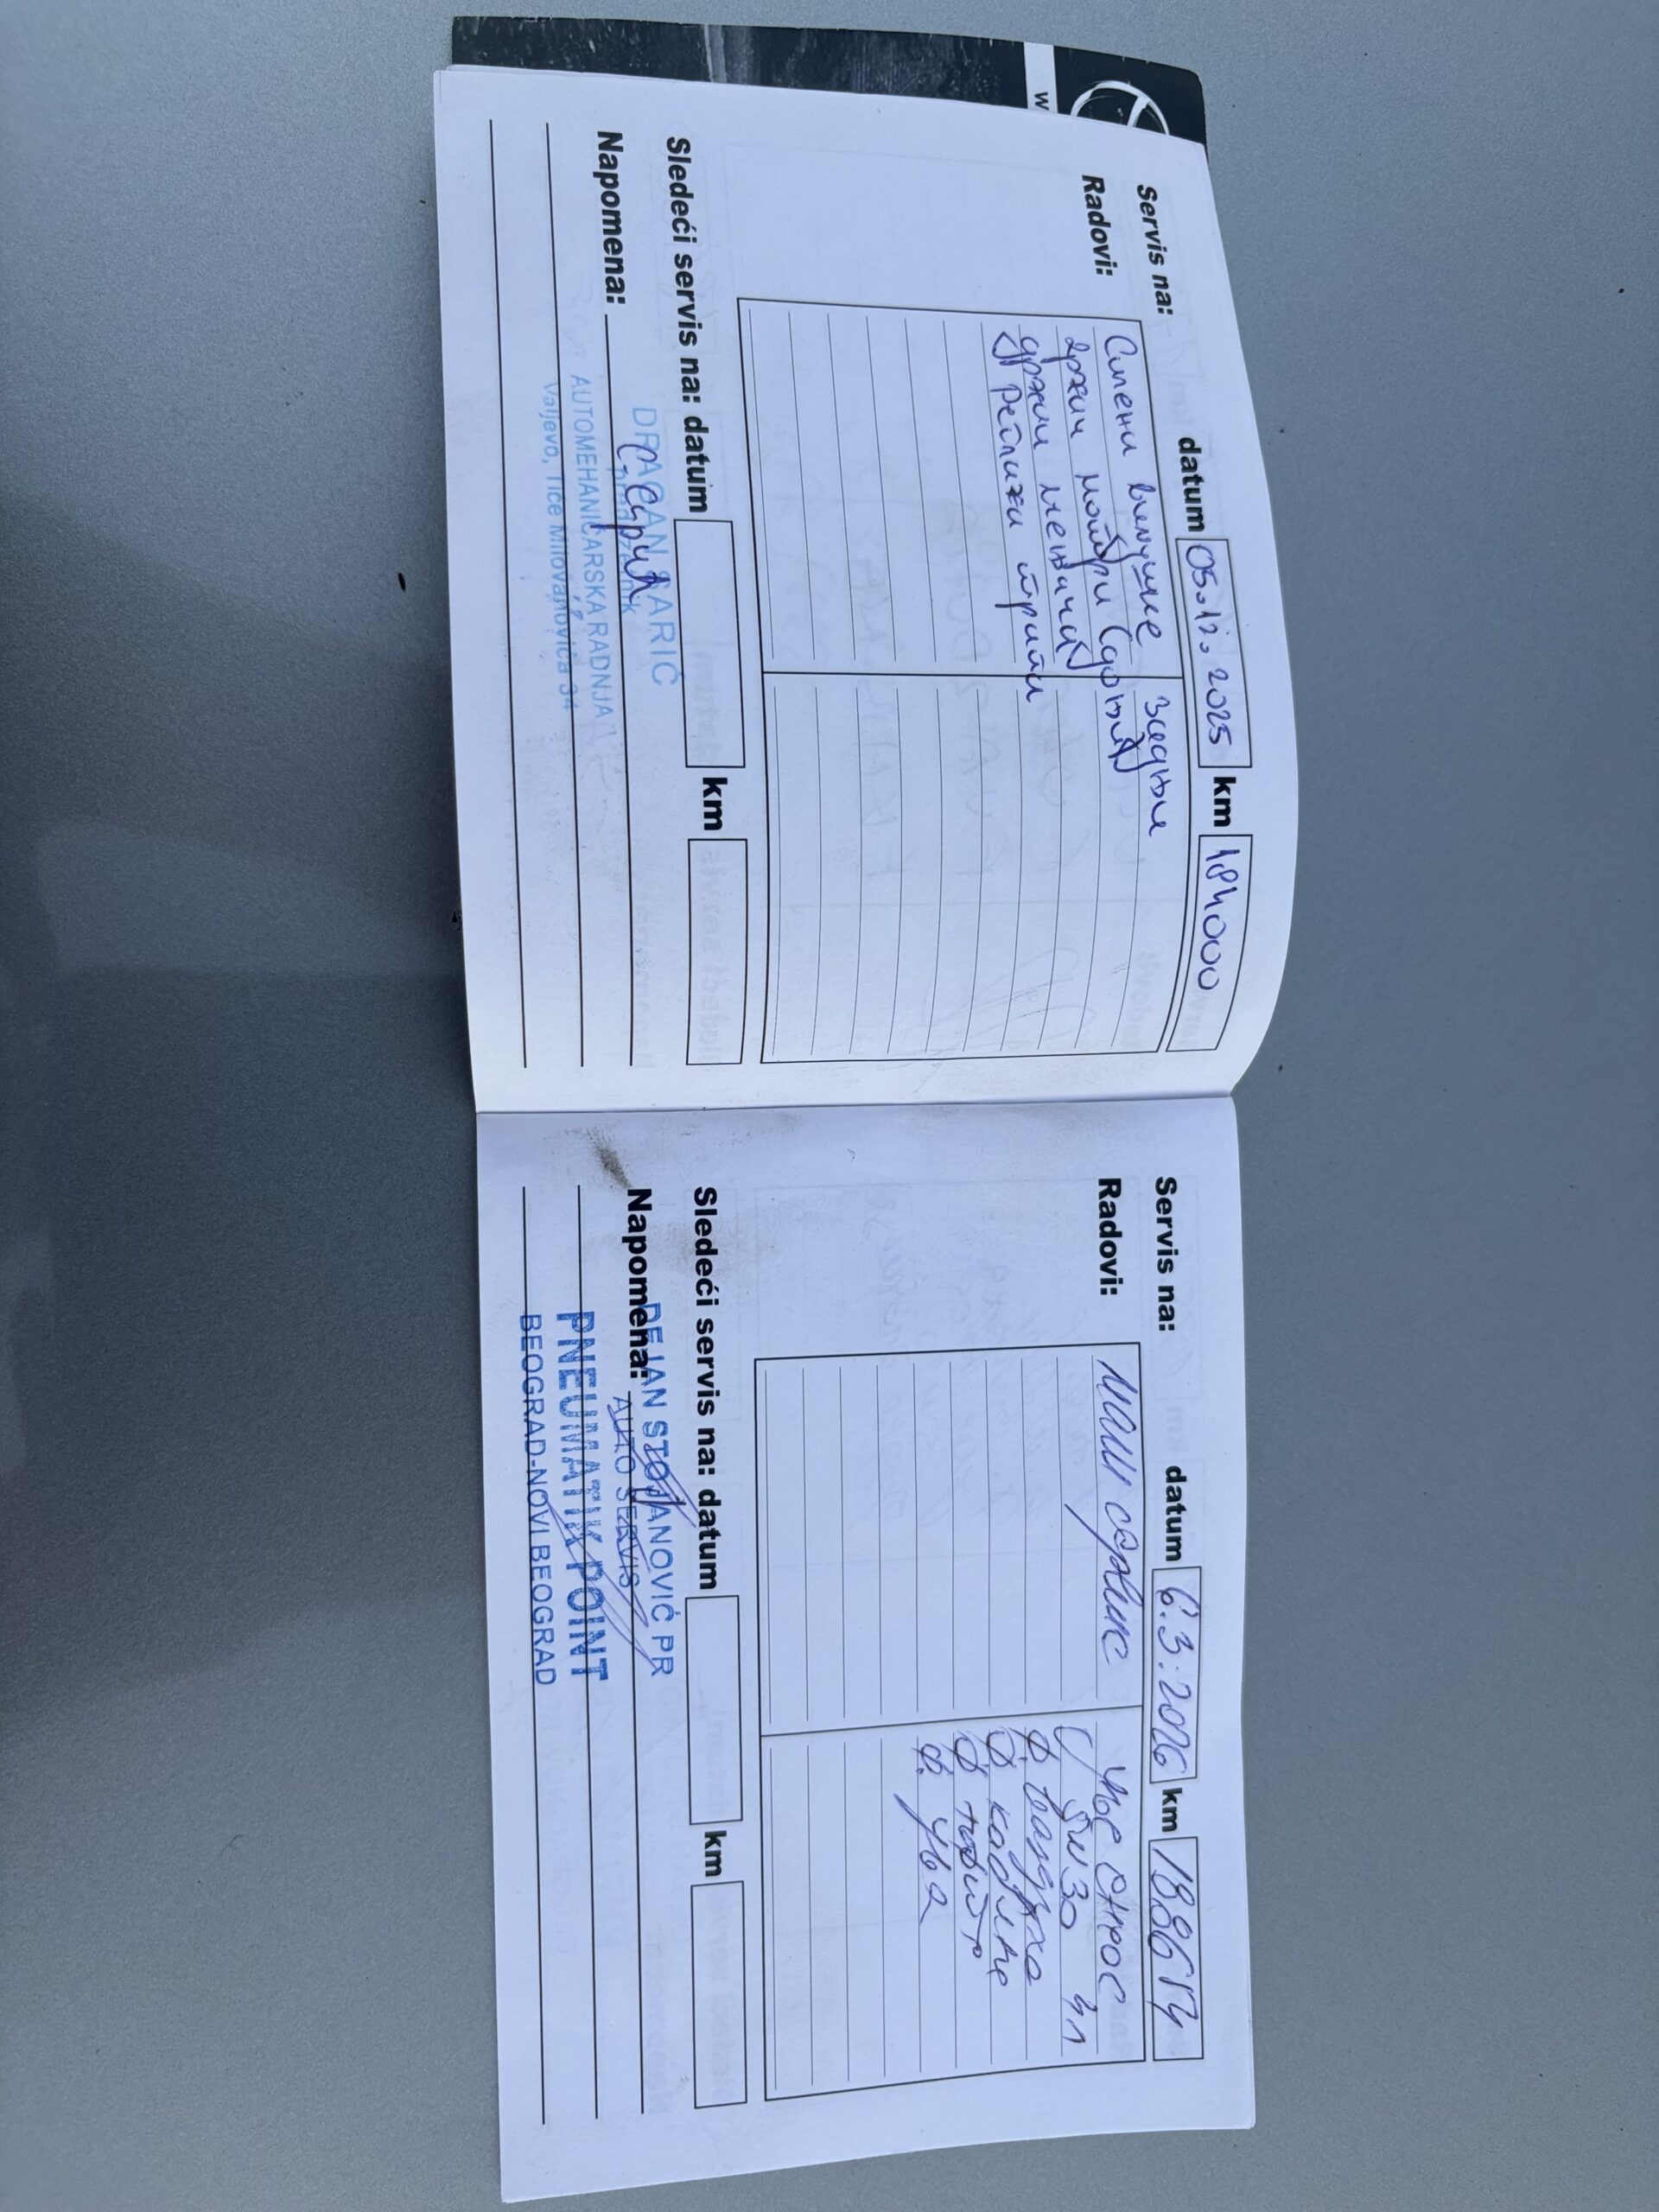 w
Servis na: datum 05.12.2025 km 184000
Radovi:
Силени вилушке задњи
држач мотора (доњи)
држач мењача
трапи
Sledeći servis na: datum km
Napomena:
DRAGAN SARIĆ
AUTOMEHANIČARSKA RADNJA
Valjevo, Tiće Milovanovića 34
Servis na: datum 6.3.2026 km
Radovi:
мали сервис
уље
4л
ф ваздуха
ф кабине
ф уља
Sledeći servis na: datum km
Napomena:
DEJAN STOJANOVIĆ PR
AUTO SERVIS
PNEUMATIK POINT
BEOGRAD-NOVI BEOGRAD